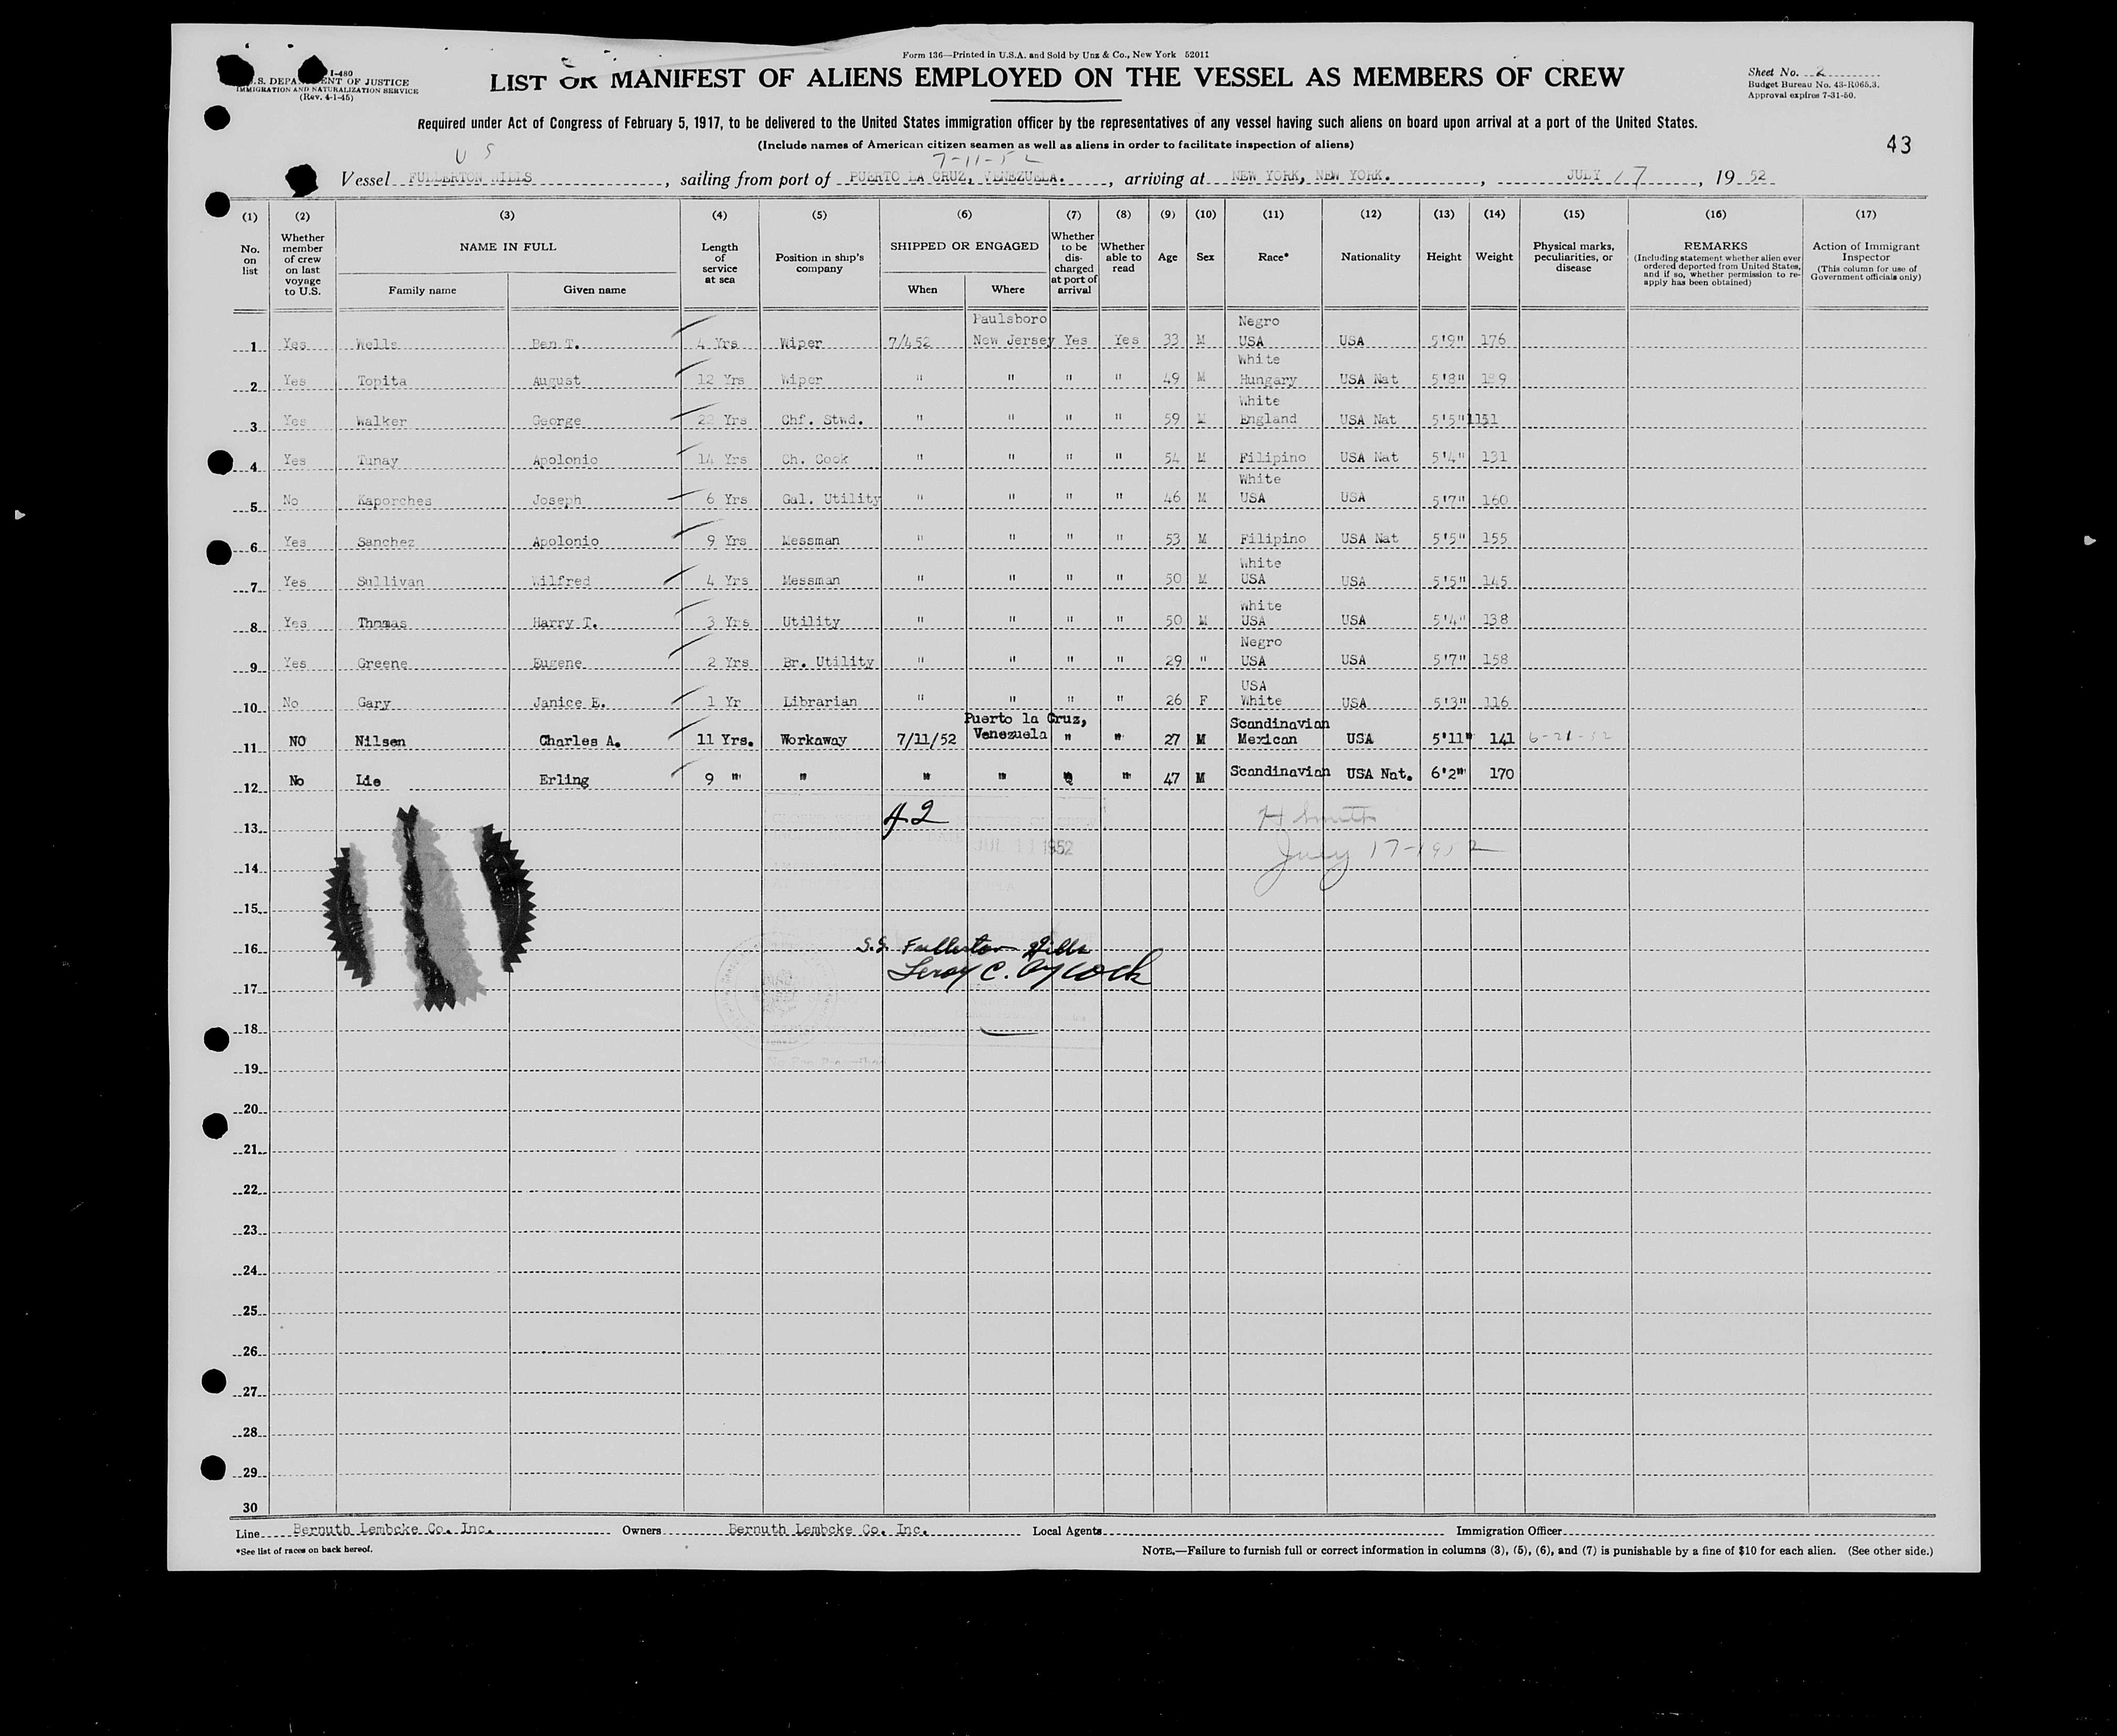 Form 136—Printed in U.S.A. and Sold by Unz & Co., New York 52011
I-480
U.S. DEPARTMENT OF JUSTICE
IMMIGRATION AND NATURALIZATION SERVICE
(Rev. 4-1-45)
LIST OR MANIFEST OF ALIENS EMPLOYED ON THE VESSEL AS MEMBERS OF CREW
Sheet No. 2
Budget Bureau No. 43-R065.3.
Approval expires 7-31-50.
Required under Act of Congress of February 5, 1917, to be delivered to the United States immigration officer by the representatives of any vessel having such aliens on board upon arrival at a port of the United States.
(Include names of American citizen seamen as well as aliens in order to facilitate inspection of aliens)
43
U S
7-11-52
Vessel FULLERTON HILLS, sailing from port of PUERTO LA CRUZ, VENEZUELA., arriving at NEW YORK, NEW YORK., JULY 17, 1952
(1) (2) (3) (4) (5) (6) (7) (8) (9) (10) (11) (12) (13) (14) (15) (16) (17)
No. on list
Whether member of crew on last voyage to U.S.
NAME IN FULL
Family name Given name
Length of service at sea
Position in ship's company
SHIPPED OR ENGAGED
When Where
Whether to be discharged at port of arrival
Whether able to read
Age
Sex
Race*
Nationality
Height
Weight
Physical marks, peculiarities, or disease
REMARKS
(Including statement whether alien ever ordered deported from United States, and if so, whether permission to re-apply has been obtained)
Action of Immigrant Inspector
(This column for use of Government officials only)
Paulsboro Negro
1 Yes Wells Ben T. 4 Yrs Wiper 7/452 New Jersey Yes Yes 33 M USA USA 5'9" 176
White
2 Yes Topita August 12 Yrs Wiper " " " " 49 M Hungary USA Nat 5'8" 189
White
3 Yes Walker George 22 Yrs Chf. Stwd. " " " " 59 M England USA Nat 5'5" 1151
4 Yes Tunay Apolonio 14 Yrs Ch. Cook " " " " 54 M Filipino USA Nat 5'4" 131
White
5 No Kaporches Joseph 6 Yrs Gal. Utility " " " " 46 M USA USA 5'7" 160
6 Yes Sanchez Apolonio 9 Yrs Messman " " " " 53 M Filipino USA Nat 5'5" 155
White
7 Yes Sullivan Wilfred 4 Yrs Messman " " " " 50 M USA USA 5'5" 145
White
8 Yes Thomas Harry T. 3 Yrs Utility " " " " 50 M USA USA 5'4" 138
Negro
9 Yes Greene Eugene 2 Yrs Br. Utility " " " " 29 " USA USA 5'7" 158
USA
10 No Gary Janice E. 1 Yr Librarian " " " " 26 F White USA 5'3" 116
Puerto la Cruz, Scandinavian
11 NO Nilsen Charles A. 11 Yrs. Workaway 7/11/52 Venezuela " " 27 M Mexican USA 5'11" 141 6-21-52
12 No Lie Erling 9 " " " " " " 47 M Scandinavian USA Nat. 6'2" 170
13
42
H Smith
JUL 11 1952
July 17-1952
14
15
16
S.S. Fullerton Hills
Leroy C. Aycock
17
18
19
20
21
22
23
24
25
26
27
28
29
30
Line Bernuth Lembcke Co. Inc. Owners Bernuth Lembcke Co. Inc. Local Agents Immigration Officer
*See list of races on back hereof.
NOTE.—Failure to furnish full or correct information in columns (3), (5), (6), and (7) is punishable by a fine of $10 for each alien. (See other side.)